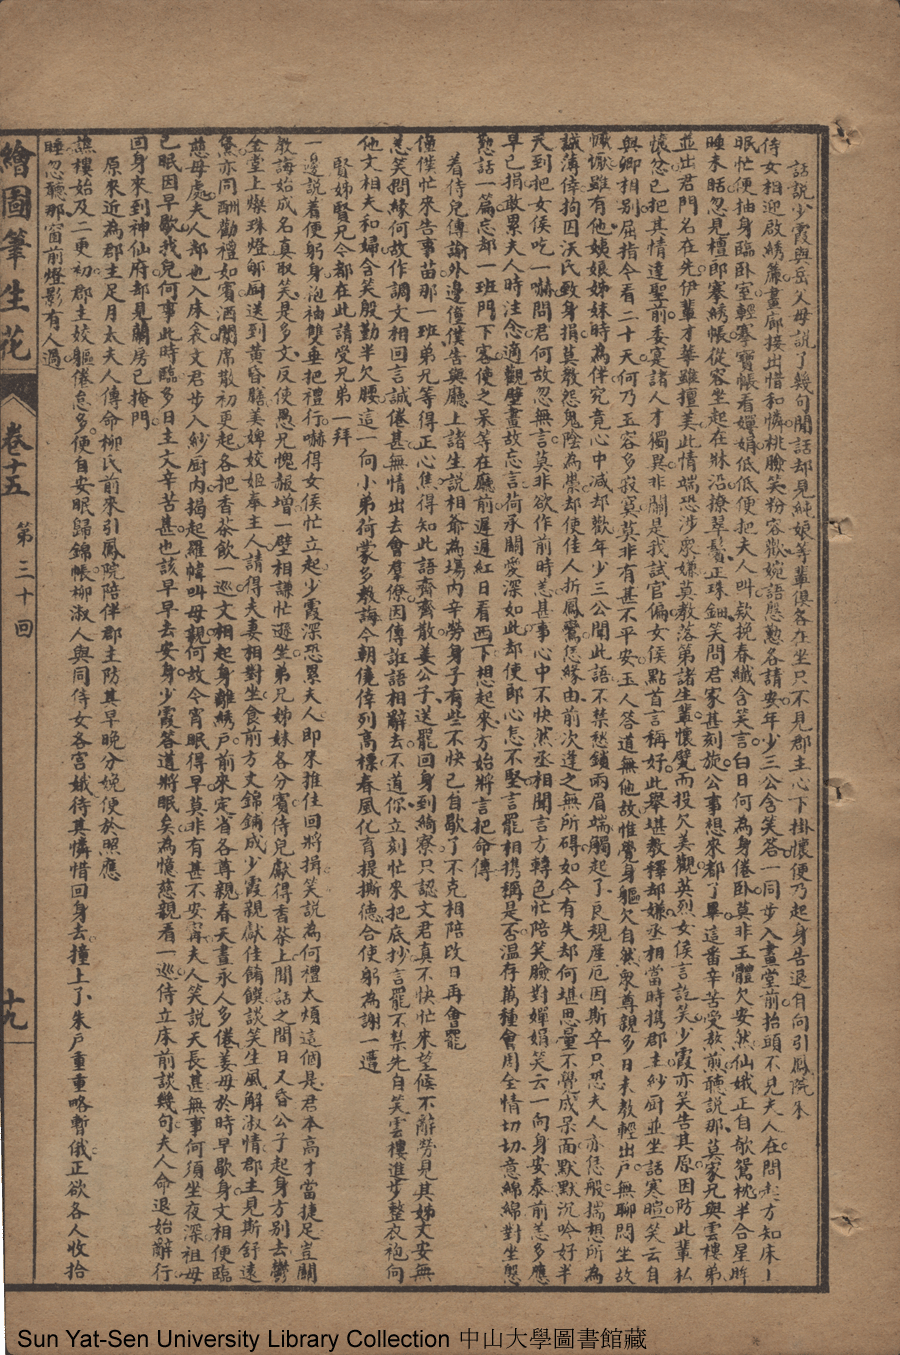 話說少霞與岳父母說了幾句閒話却見純娘等輩俱各在坐只不見郡主心下掛懷便乃起身告退自向引鳳院來
侍女相迎啟綉簾畫廊接出惜和憐桃臉笑粉容歡婉語慇懃各請安年少三公含笑答一同步入畫堂前抬頭不見夫人在問起方知床上
眠忙便抽身臨卧室輕搴寶帳看嬋娟低低便把夫人叫欵挽春纖含笑言白日何為身倦卧莫非玉體欠安然仙娥正自欹鴛枕半合星眸
睡未眠忽見檀郎搴綉帳從容坐起在牀沿撩翠鬢正珠鈿笑問君家甚刻旋公事想來都了畢這番辛苦受熬煎聽說那莫家兄與雲樓弟
並出君門名在先伊輩才華雖擅美此情端恐涉衆嫌莫教落第諸生輩懷覺而投欠美觀英烈女侯言訖笑少霞亦笑告其原因防此輩私
懷忿已把其情達聖前委寔諸人才獨異非關是我試官偏女侯點首言稱好此舉堪教釋却嫌丞相當時携郡主紗厨並坐話寒暄笑云自
與卿相別屈指今看二十天何乃玉容多寂寞莫非有甚不平安玉人答道無他故惟覺身軀欠自然衆尊親多日未教輕出戶無聊悶坐故
懨懨雖有他姨娘姊妹時為伴究竟心中减却歡年少三公聞此語不禁愁鎖兩眉端觸起了良規產厄因斯卒只恐夫人亦恁般揣想所為
誠薄倖拘因沃氏致身捐莫教怨鬼陰為祟却使佳人折鳳鸞恁緣由前次逢之無所碍如今有失却何堪思量不覺成呆面默默沉吟好半
天到把女侯吃一嚇問君何故忽無言莫非欲作前時恙甚事心中不快然丞相聞言方轉色忙陪笑臉對嬋娟笑云一向身安泰前恙多應
早已捐敢累夫人時注念適觀壁畫故忘言荷承關愛深如此却使郎心怎不堅言罷相携稱是否溫存萬種會周全情切切意綿綿對坐慇
懃話一篇忘却一班門下客使之呆等在廳前遲遲紅日看西下想起來方始將言把命傳
着侍兒傳諭外邊僮僕告與廳上諸生說相爺為場内辛勞身子有些不快已自歇了不克相陪改日再會罷
僮僕忙來告事苗那一班弟兄等得正心焦得知此語齊齊散姜公子送罷回身到綺寮只認文君真不快忙來望候不辭勞見其姊丈安無
恙笑問緣何故作調文相回言誠倦甚無情出去會羣僚因傳誑語相辭去不道你立刻忙來把底抄言罷不禁先自笑雲樓進步整衣袍向
他文相夫和婦含笑殷勤半欠腰這一向小弟荷蒙多教誨今朝僥倖列高標春風化育提撕德合使躬為謝一遭
賢姊賢兄今都在此請受兄弟一拜
一邊説着便躬身泡袖雙垂把禮行嚇得女侯忙立起少霞深恐累夫人即來推住回將揖笑說為何禮太煩這個是君本高才當捷足豈關
教誨始成名真取笑是多文反使愚兄愧赧增一璧相謙忙遜坐弟兄姊妹各分賓侍兒獻得香茶上閒話之間日又昏公子起身方别去鬱
金堂上燦珠燈郇厨送到黄昏膳美婢姣姬奉主人請得夫妻相對坐食前方丈錦鋪成少霞親獻佳餚饌談笑生風解淑情郡主見斯舒遠
黛亦同酬勸禮如賓酒闌席散初更起各把香茶飲一巡文相起身離綉戶前來定省各尊親春天晝永人多倦姜母於時早歇身文相便臨
慈母處夫人却也入床衾文君步入紗厨内揭起羅幃叫母親何故今宵眠得早莫非有甚不安甯夫人笑說天長甚無事何須坐夜深祖母
已眠因早歇我兒何事此時臨多日主文辛苦甚也該早早去安身少霞答道將眠矣為憶慈親看一巡侍立床前談幾句夫人命退始辭行
回身來到神仙府却見蘭房已掩門
原來近為郡主足月太夫人傳命柳氏前來引鳳院陪伴郡主防其早晚分娩便於照應
譙樓始及二更初郡主姣軀倦怠多便自安眠歸錦帳柳淑人與同侍女各宮娥待其憐惜回身去撞上了朱戶重重略暫俄正欲各人收拾
睡忽聽那窗前燈影有人過
繪圖筆生花 卷十五 第三十回 十九
Sun Yat-Sen University Library Collection 中山大學圖書館藏